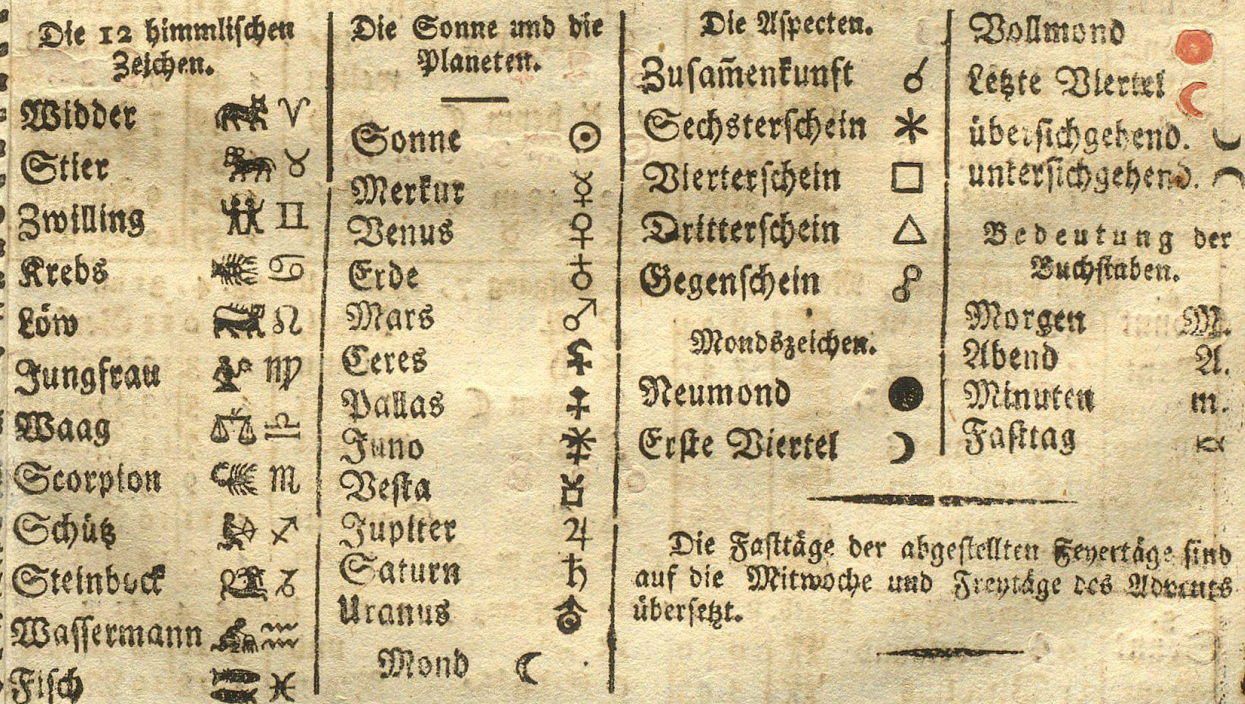 Die 12 himmlischen
Zeichen.
Widder ♈
Stier ♉
Zwilling ♊
Krebs ♋
Löw ♌
Jungfrau ♍
Waag ♎
Scorpion ♏
Schütz ♐
Steinbock ♑
Wassermann ♒
Fisch ♓
Die Sonne und die
Planeten.
Sonne ☉
Merkur ☿
Venus ♀
Erde ♁
Mars ♂
Ceres ⚳
Pallas ⚴
Juno ⚵
Vesta ⚶
Jupiter ♃
Saturn ♄
Uranus ⛢
Mond ☾
Die Aspecten.
Zusam̄enkunft ☌
Sechsterschein ⚹
Vierterschein □
Dritterschein △
Gegenschein ☍
Mondszeichen.
Neumond ●
Erste Viertel ☽
Vollmond
Letzte Viertel ☾
übersichgehend.
untersichgehend.
Bedeutung der
Buchstaben.
Morgen M.
Abend A.
Minuten m.
Fasttag
Die Fasttäge der abgestellten Feyertäge sind
auf die Mitwoche und Freytäge des Advents
übersetzt.